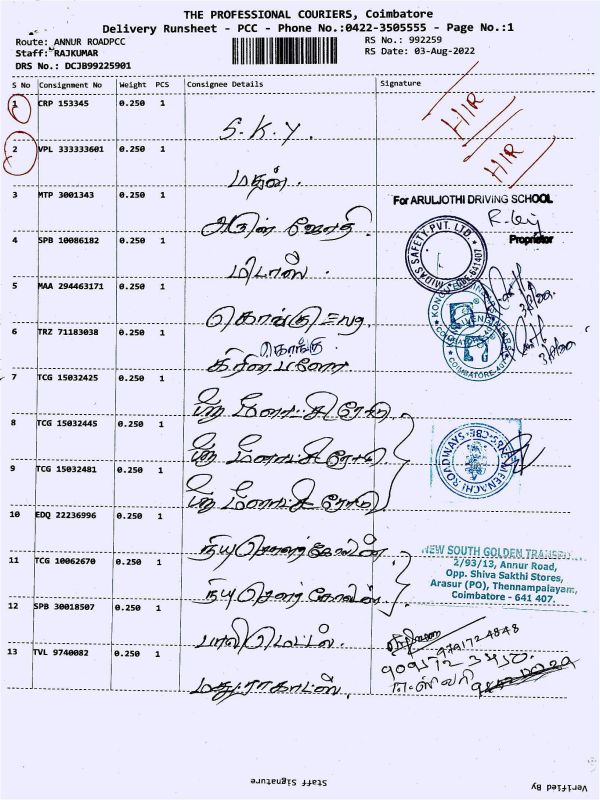 THE PROFESSIONAL COURIERS, Coimbatore
Delivery Runsheet - PCC - Phone No.:0422-3505555 - Page No.:1
Route: ANNUR ROADPCC
RS No.: 992259
Staff: RAJKUMAR
RS Date: 03-Aug-2022
DRS No.: DCJB99225901
S No Consignment No Weight PCS Consignee Details Signature
1 CRP 153345 0.250 1 S.K.Y. HIR
2 VPL 333333601 0.250 1 மதன். HIR
3 MTP 3001343 0.250 1 அருள் ஜோதி
For ARULJOTHI DRIVING SCHOOL
Proprietor
4 SPB 10086182 0.250 1 மிடாஸ்
MIDAS SAFETY PVT. LTD.
5 MAA 294463171 0.250 1 கொங்கு
6 TRZ 71183038 0.250 1 கொங்கு
COIMBATORE
7 TCG 15032425 0.250 1 ஸ்ரீ மீனாட்சி ரோடு
8 TCG 15032445 0.250 1 ஸ்ரீ மீனாட்சி ரோடு
9 TCG 15032481 0.250 1 ஸ்ரீ மீனாட்சி ரோடு
MEENACHI ROADWAYS
10 EDQ 22236996 0.250 1 நியூ சௌத் கோல்டன்
11 TCG 10062670 0.250 1 நியூ சௌத் கோல்டன்
NEW SOUTH GOLDEN
2/93/13, Annur Road,
Opp. Shiva Sakthi Stores,
Arasur (PO), Thennampalayam,
Coimbatore - 641 407.
12 SPB 30018507 0.250 1 பாலி மெட்டல்
9791724848
13 TVL 9740082 0.250 1 மதுரா கோட்ஸ்
Staff Signature
Verified By